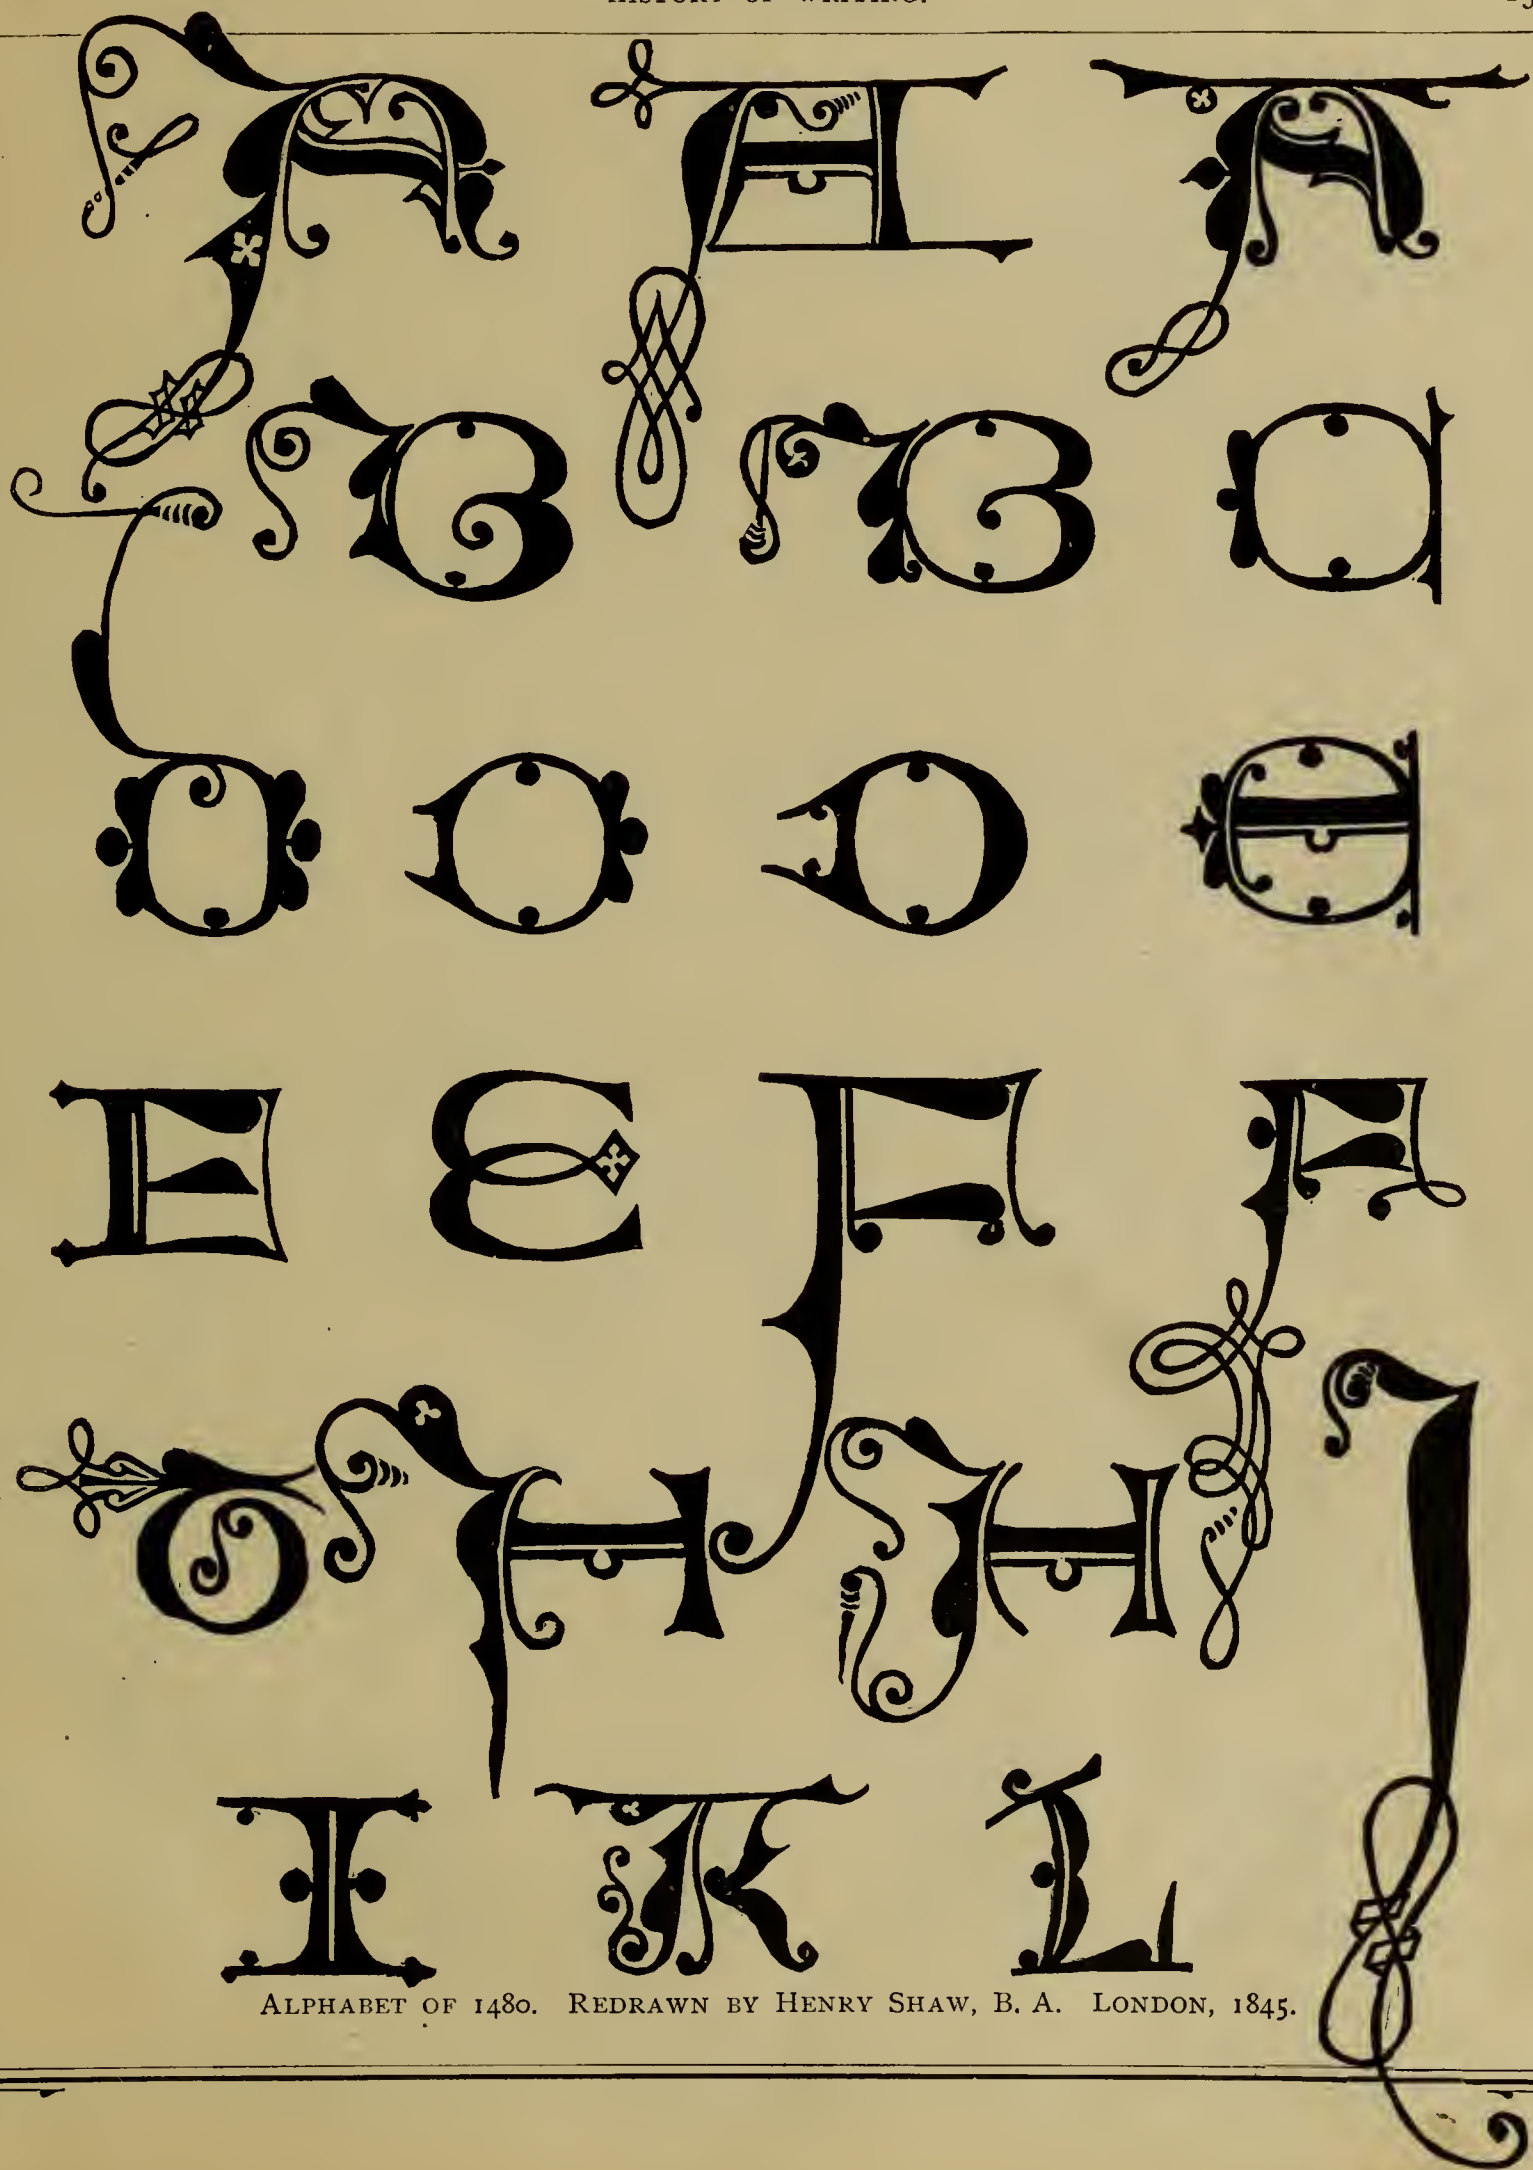 HISTORY OF WRITING.
A A A
B B C
D D D E
E E F F
G H H J
I K L
ALPHABET OF 1480. REDRAWN BY HENRY SHAW, B. A. LONDON, 1845.